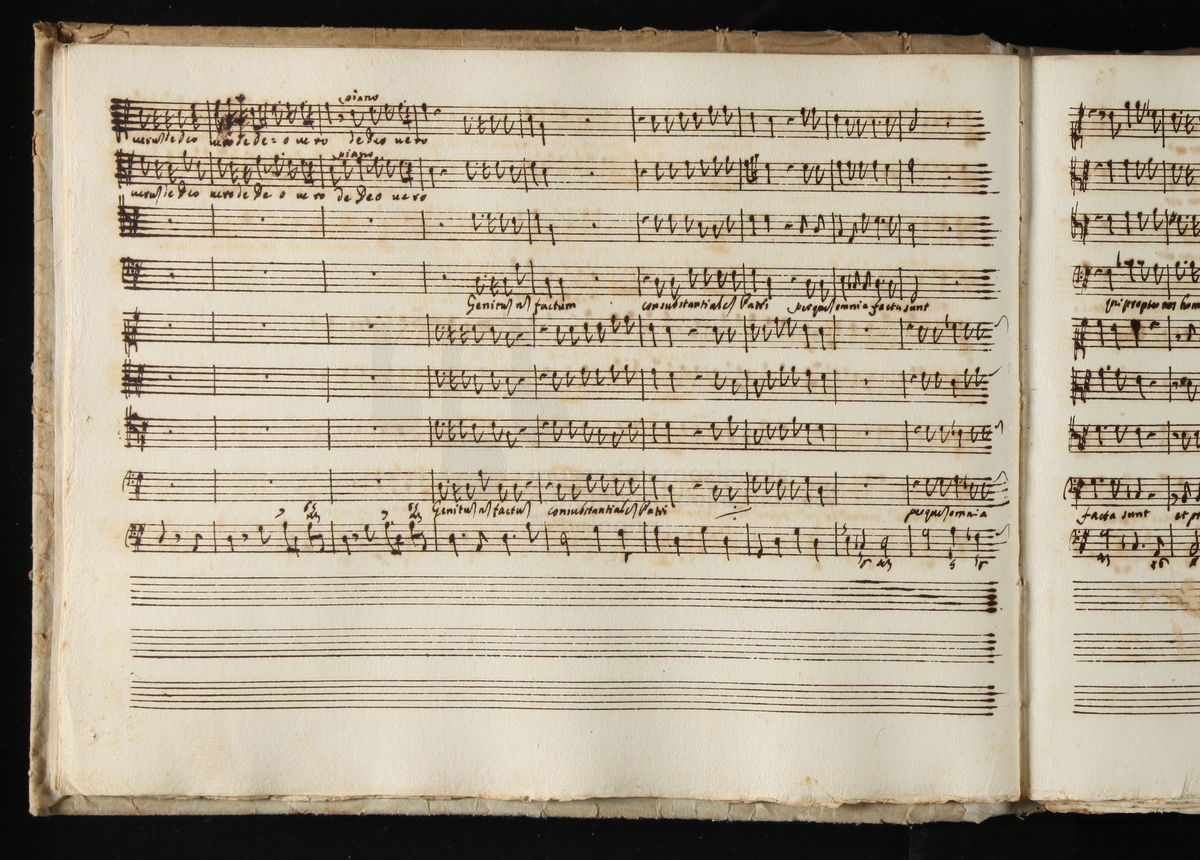 piano
verū de deo vero de de=o vero de Deo vero
piano
verū de Deo vero de De o vero de Deo vero
Genitū nō factum consubstantialē Patri per quē omnia facta sunt
Genitū nō factū consubstantialē Patri per quē omnia
facta sunt et p